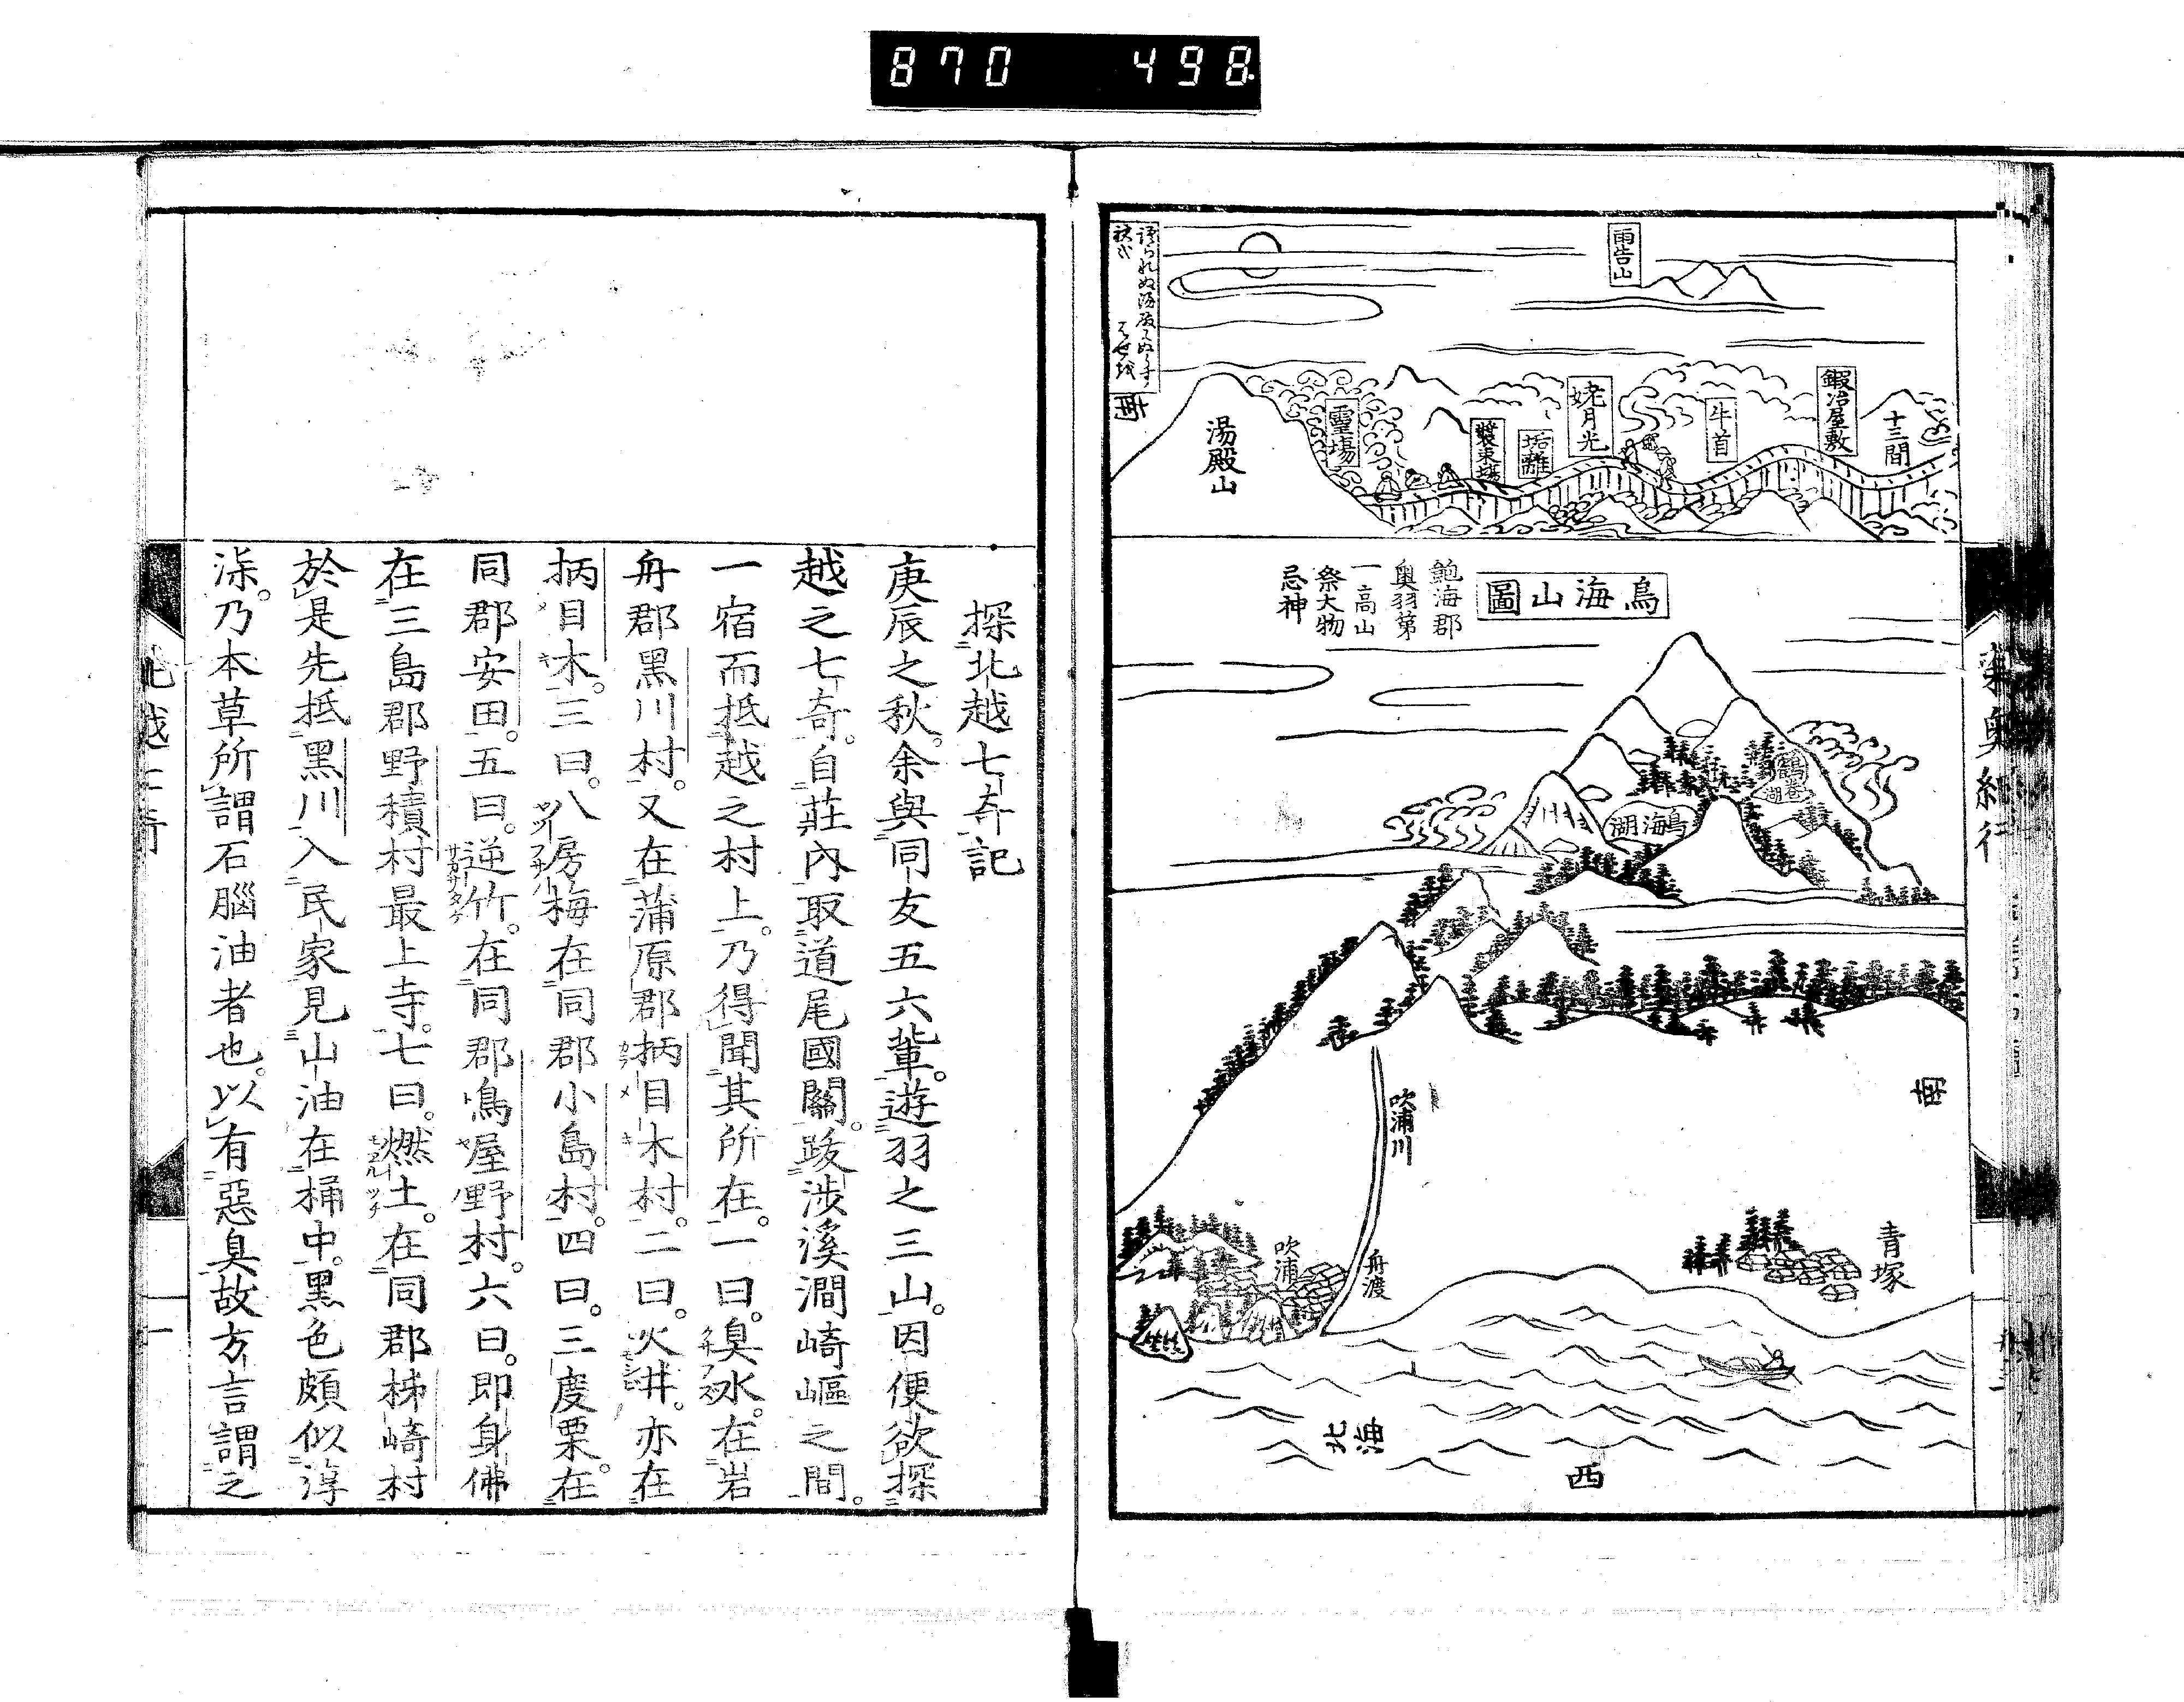 870 498
雨告山
十三間
鍜冶屋敷
牛首
姥月光
垢離
裝束場
靈場
湯殿山
語られぬ湯殿にぬらす
袂哉 はせを
鳥海山圖
飽海郡
奥羽第
一高山
祭大物
忌神
鳥海湖
吹浦川
南
青塚
舟渡
吹浦
北海
西
探北越七奇記
庚辰之秋。余與同友五六輩。遊羽之三山。因便欲探
越之七奇。自莊內取道尾國關。跋涉溪澗崎嶇之間。
一宿而抵越之村上。乃得聞其所在。一曰。臭水。在岩
舟郡黑川村。又在蒲原郡柄目木村。二曰。火井。亦在
柄目木。三曰。八房梅在同郡小島村。四曰。三度栗。在
同郡安田。五曰。逆竹。在同郡鳴屋野村。六曰。即身佛
在三島郡野積村最上寺。七曰。燃土。在同郡柹崎村
於是先抵黑川入民家見山油在桶中。黑色頗似淳
柒。乃本草所謂石腦油者也。以有惡臭故方言謂之
北越七奇
一